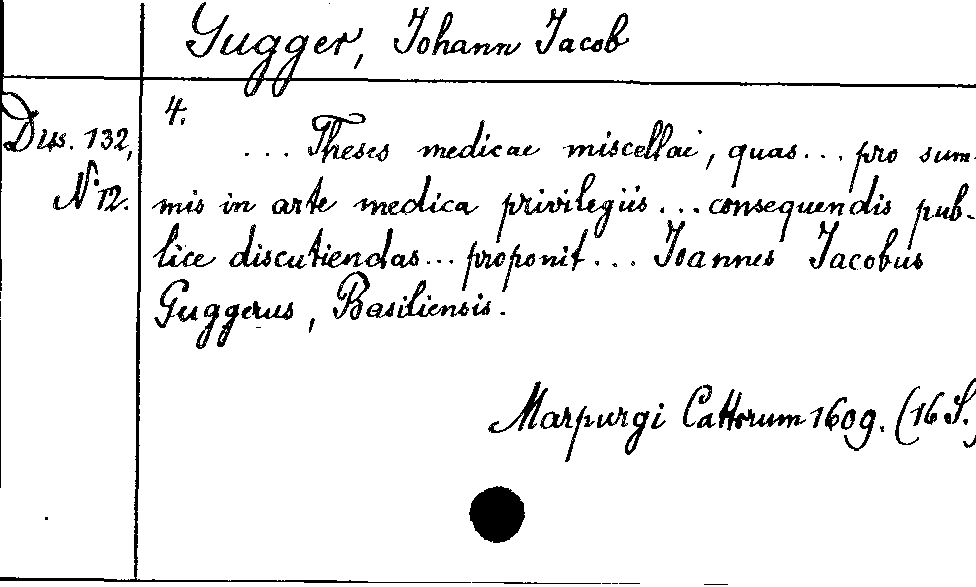 Gugger, Johann Jacob
4.
Diss. 132,
N° 12.
... Theses medicae miscellae, quas... pro sum-
mis in arte medica privilegiis ... consequendis pub-
lice discutiendas ... proponit ... Joannes Jacobus
Guggerus, Basiliensis.
Marpurgi Cattorum 1609. (16 S.)